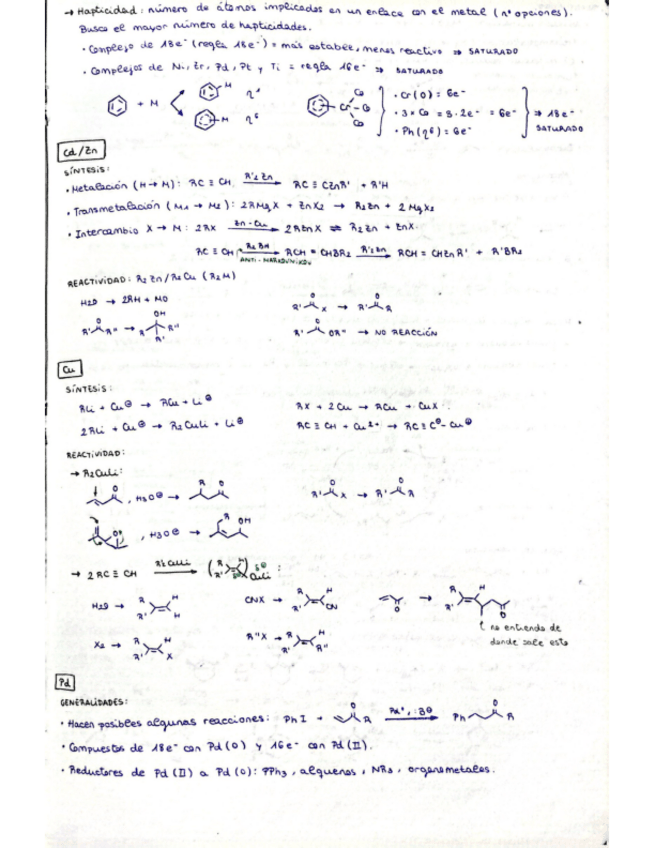 → Hapticidad: número de átomos implicados en un enlace con el metal (nº opciones).
Busca el mayor número de hapticidades.
· Complejo de 18e⁻ (regla 18e⁻) = más estable, menos reactivo ⇒ SATURADO
· Complejos de Ni, Zr, Pd, Pt y Ti = regla 16e⁻ ⇒ SATURADO
+ M M η¹ M η⁶
Cr Co Co Co
· Cr(0) = 6e⁻
· 3 × Co = 3·2e⁻ = 6e⁻ ⇒ 18e⁻
· Ph(η⁶) = 6e⁻ SATURADO
Cd/Zn
SÍNTESIS:
· Metalación (H→M): RC ≡ CH R'₂Zn → RC ≡ CZnR' + R'H
· Transmetalación (M₁ → M₂): 2RMgX + ZnX₂ → R₂Zn + 2 MgX₂
· Intercambio X → M: 2RX Zn-Cu → 2RZnX ⇌ R₂Zn + ZnX₂
RC ≡ CH R₂BH → RCH = CHBR₂ R'₂Zn → RCH = CHZnR' + R'BR₂
ANTI-MARKOVNIKOV
REACTIVIDAD: R₂Zn/R₂Cu (R₂M)
H₂O → 2RH + MO
R' O X → R' O R
R' O R'' → R OH R'' R'
R' O OR'' → NO REACCIÓN
Cu
SÍNTESIS:
RLi + Cu⊕ → RCu + Li⊕
RX + 2Cu → RCu + CuX
2RLi + Cu⊕ → R₂CuLi + Li⊕
RC ≡ CH + Cu²⁺ → RC ≡ C⊖ - Cu⊕
REACTIVIDAD:
→ R₂CuLi:
O , H₃O⊕ → R O
R' O X → R' O R
O , H₃O⊕ → R OH
→ 2RC ≡ CH R'₂CuLi → (R R' H) CuLi :
H₂O → R R' H H
CNX → R R' H CN
O → R R' H O
no entiendo de
donde sale esto
X₂ → R R' H X
R''X → R R' H R''
Pd
GENERALIDADES:
· Hacen posibles algunas reacciones: PhI + O R Pd⁰, :B⊖ → Ph O R
· Compuestos de 18e⁻ con Pd(0) y 16e⁻ con Pd(II).
· Reductores de Pd(II) a Pd(0): PPh₃, alquenos, NR₃, organometales.